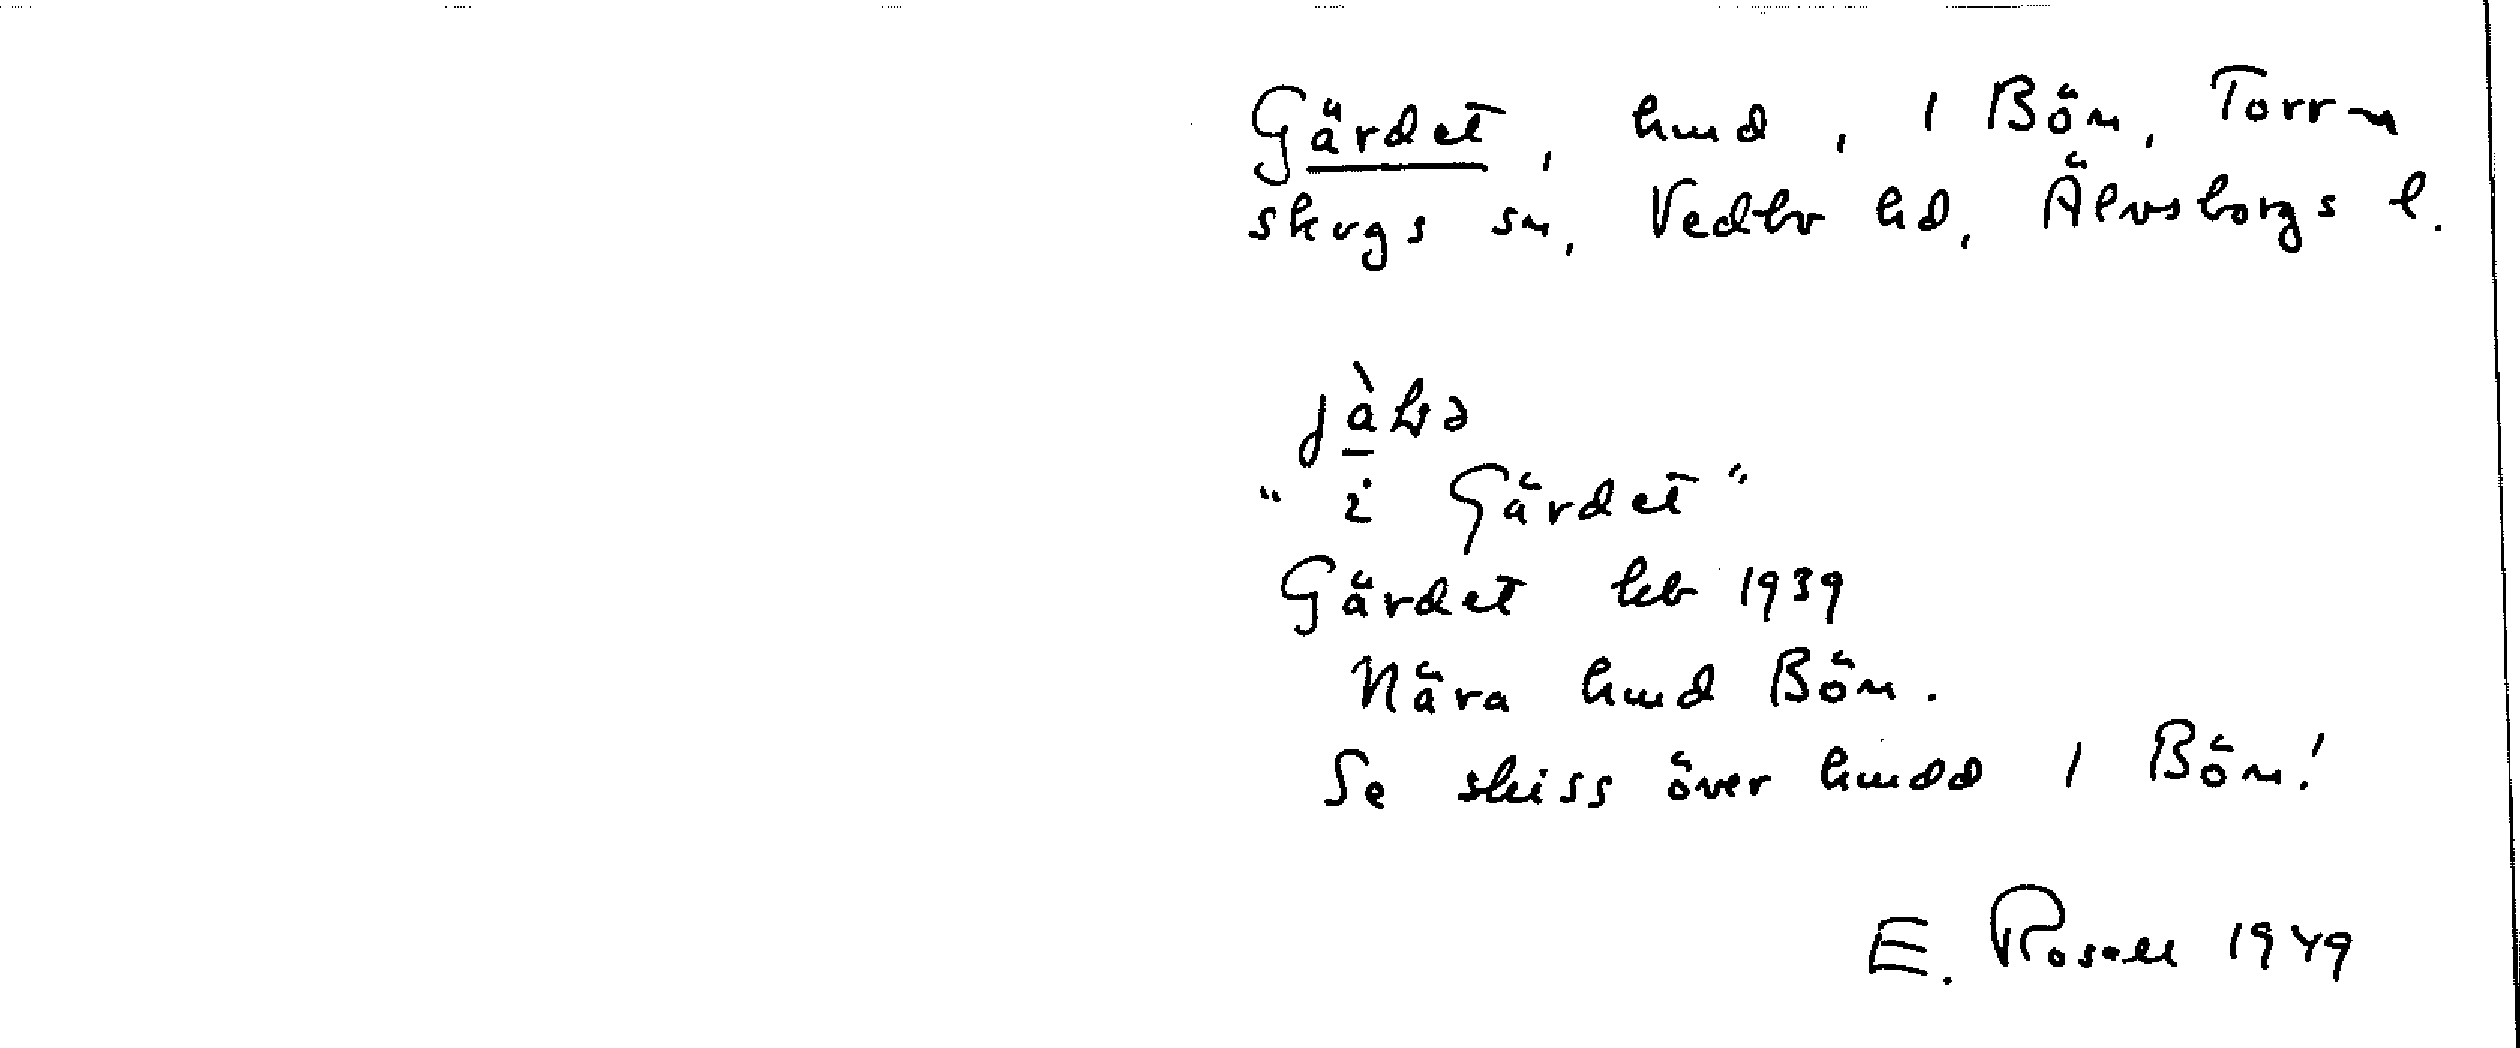 Gärdet, hmd, i Bön, Torr~
skogs sn, Vedbo hd, Älvsborgs l.
"i Gärdet"
Gärdet kb 1939
Nära hmd Bön.
Se skiss över hmdd i Bön!
E. Rosell 1949